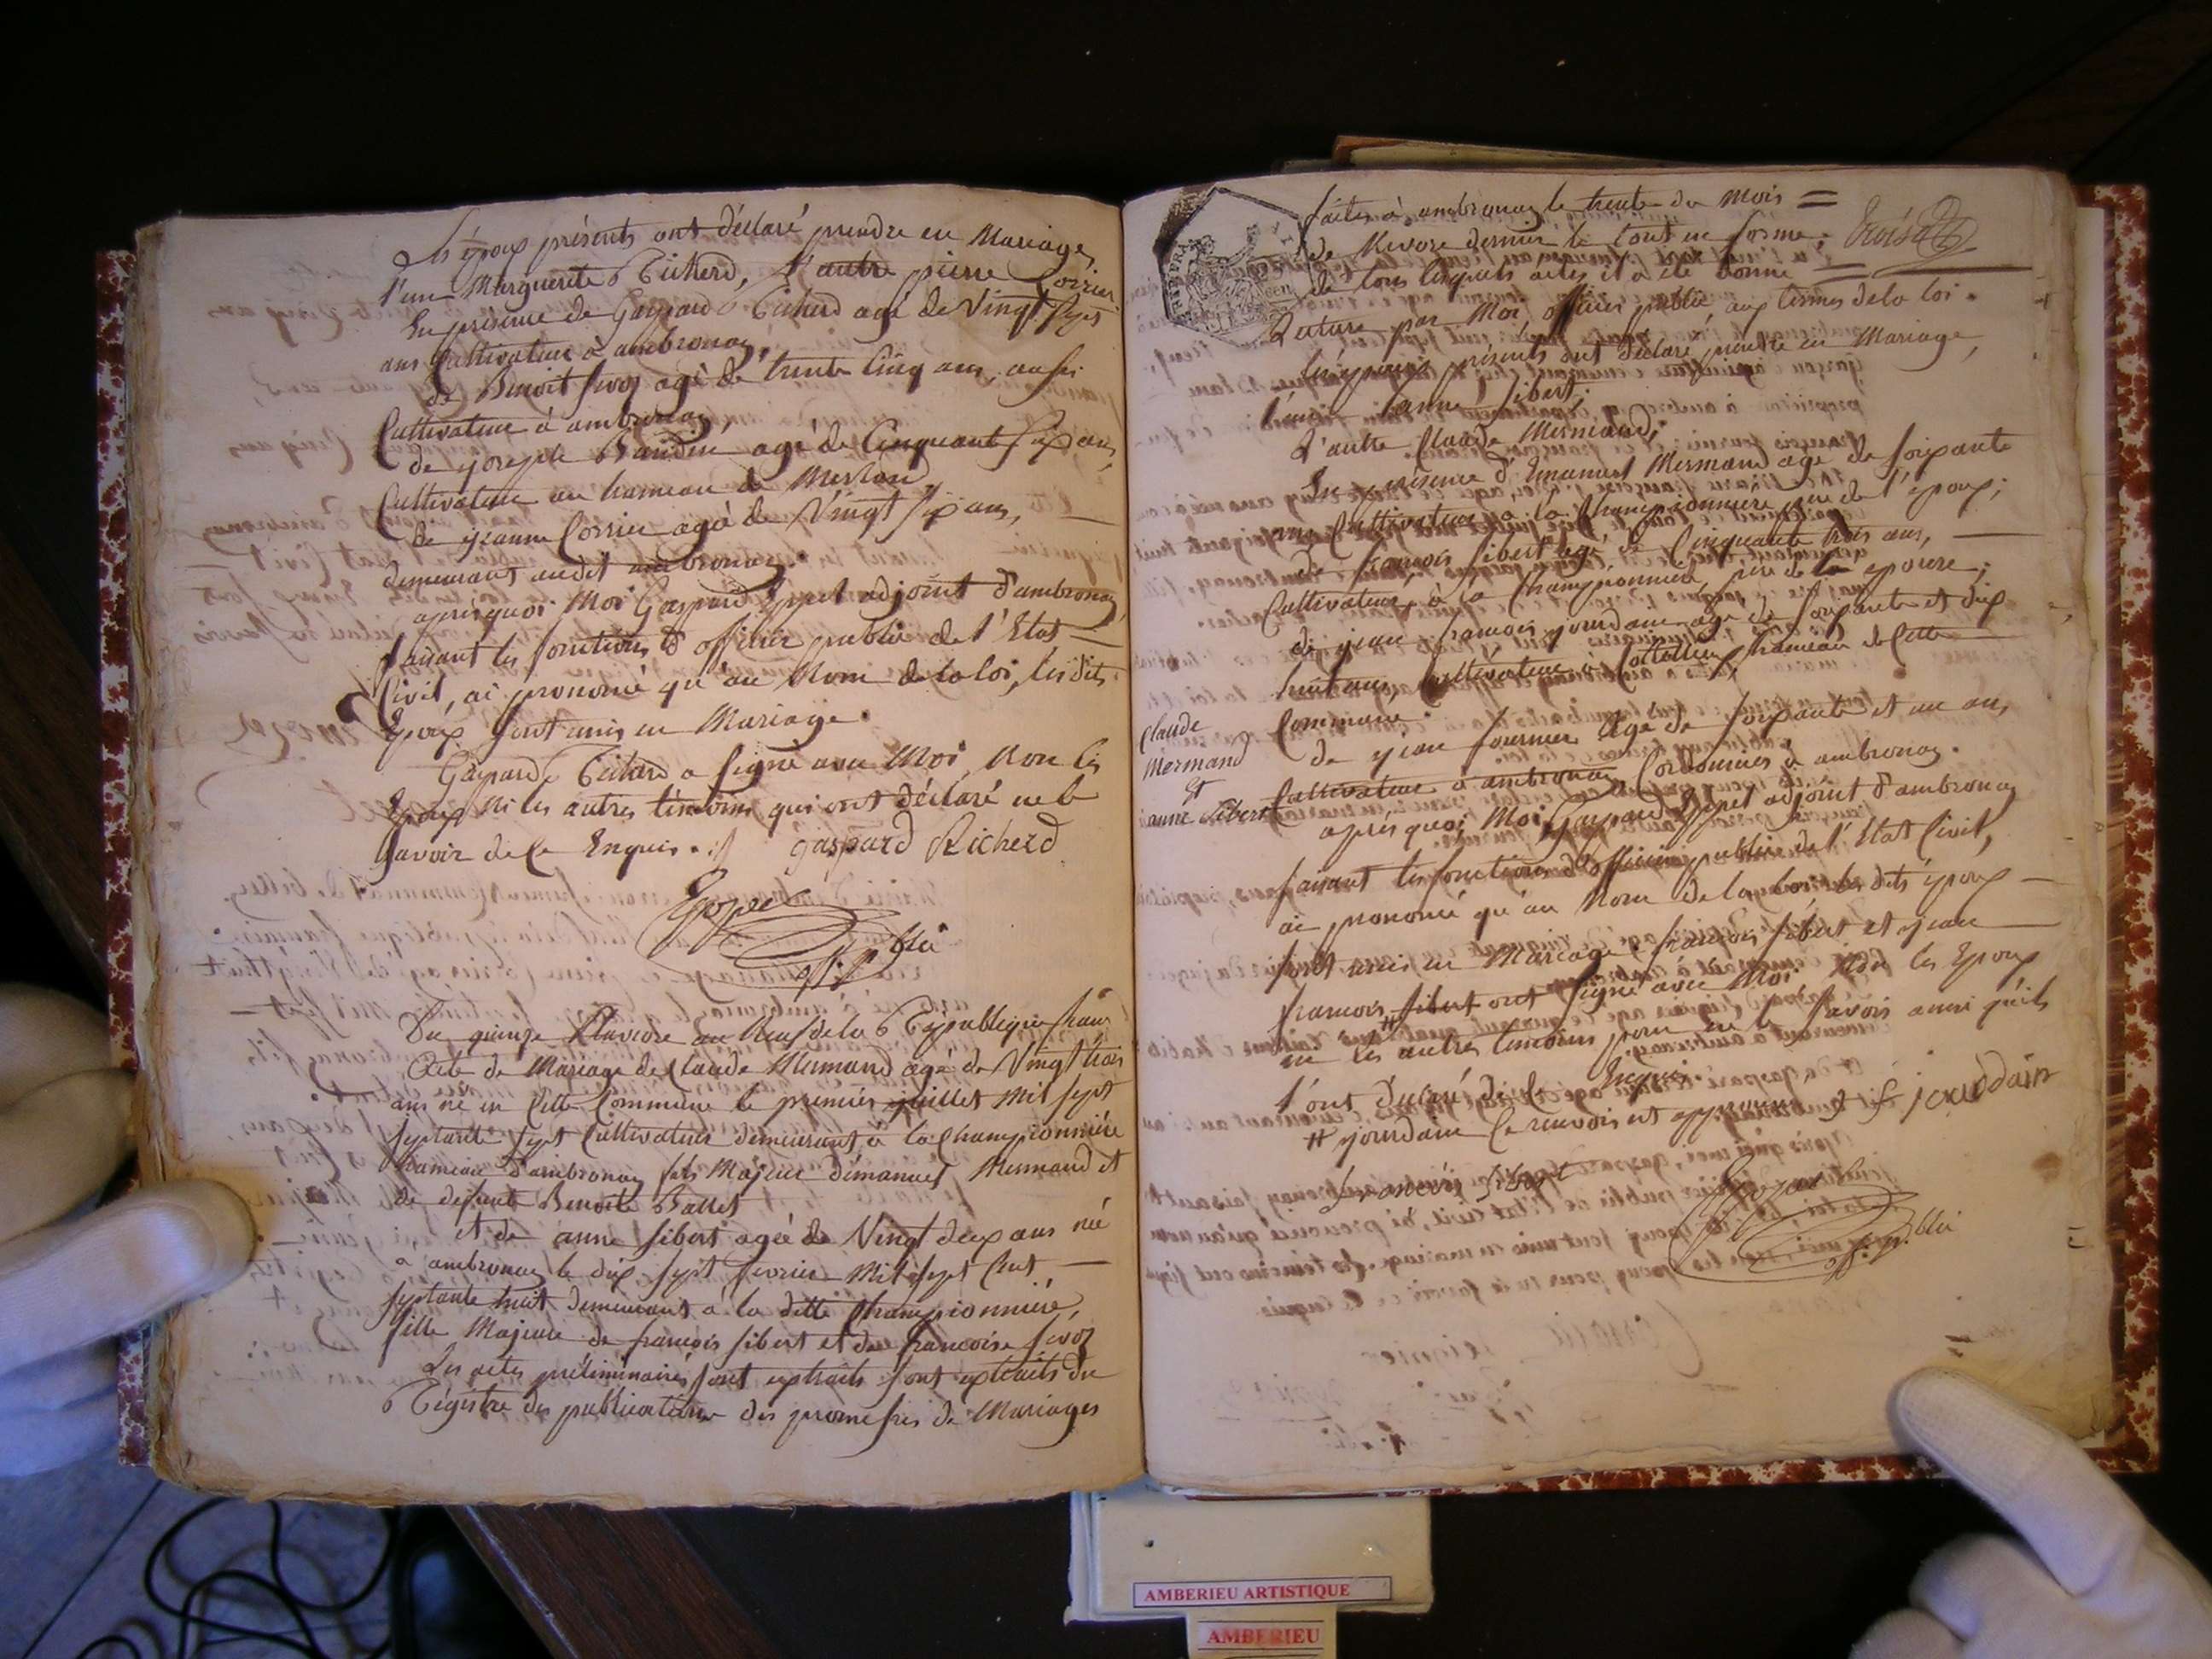 Les époux présents ont déclaré prendre en Mariage
l'une Marguerite Richerd, L'autre pierre Corrier
En présence de Gaspard Richerd agé de Vingt sept
ans Cultivateur à ambronay,
de Benoit sevoz agé de trente Cinq ans, aussi
Cultivateur à ambronay
de joseph Baudin agé de Cinquante six ans,
Cultivateur au hameau de Merland,
de jeanne Corrier agée de Vingt six ans,
demeurant audit ambronay
après quoi Moi Gaspard Eppel adjoint d'ambronay
faisant les fonctions d'officier public de l'Etat
Civil, ai prononcé qu'au Nom de la loi, les dits
Epoux sont unis en Mariage.
Gaspard Richerd a signé avec Moi, Non les
Epoux Ni les autres témoins qui ont déclaré ne le
savoir de ce Enquis. gaspard Richerd
off. p. blic
Du quinze Pluviose an Neuf de la République franc
Acte de Mariage de Claude Mermand agé de Vingt trois
ans né en Cette Commune le premier juillet Mil sept
septante sept Cultivateur demeurant à la Championnière
hameau d'ambronay fils Majeur d'émanuel Mermand et
de defunte Benoite Ballet
et de anne sibert agée de Vingt deux ans née
a ambronay le dix sept fevrier Mil sept Cent
septante huit demeurant à la ditte Championnière,
fille Majeure de françois sibert et de francoise sevoz
Les actes préliminaires sont extraits sont extraits du
Régistre des publications des promesses de Mariages
faites à ambronay le trente du Mois =
de Nivose dernier le tout en forme;
de tous lesquels actes il a été donné
Lecture par Moi officier public aux termes de la loi.
Les époux présents ont déclaré prendre en Mariage,
l'une anne sibert,
L'autre Claude Mermand,
En présence d'Emanuel Mermand agé de soixante
ans Cultivateur à la Championnière père de l'époux;
de françois sibert agé de Cinquante trois ans,
Cultivateur, à la Championnière, père de la epouse;
de jean françois jourdain agé de soixante et dix
huit ans, Cultivateur à hameau de Cette
Commune.
Claude
Mermand
Et
anne sibert
de jean fournier agé de soixante et un an,
Cultivateur à ambronay Cordonnier à ambronay.
après quoi Moi Gaspard Eppel adjoint d'ambronay
faisant les fonctions d'officier public de l'Etat Civil,
ai prononcé qu'au Nom de la loi les dits époux
sont unis en Mariage. françois sibert et jean
francois # sibert ont signé avec Moi Non les Epoux
ni les autres temoins pour ne le savoir ainsi qu'ils
l'ont déclaré de ce Enquis.
# jourdain le renvois est approuvé f jourdain
françois Sibert
off. p. blic
AMBERIEU ARTISTIQUE
AMBERIEU